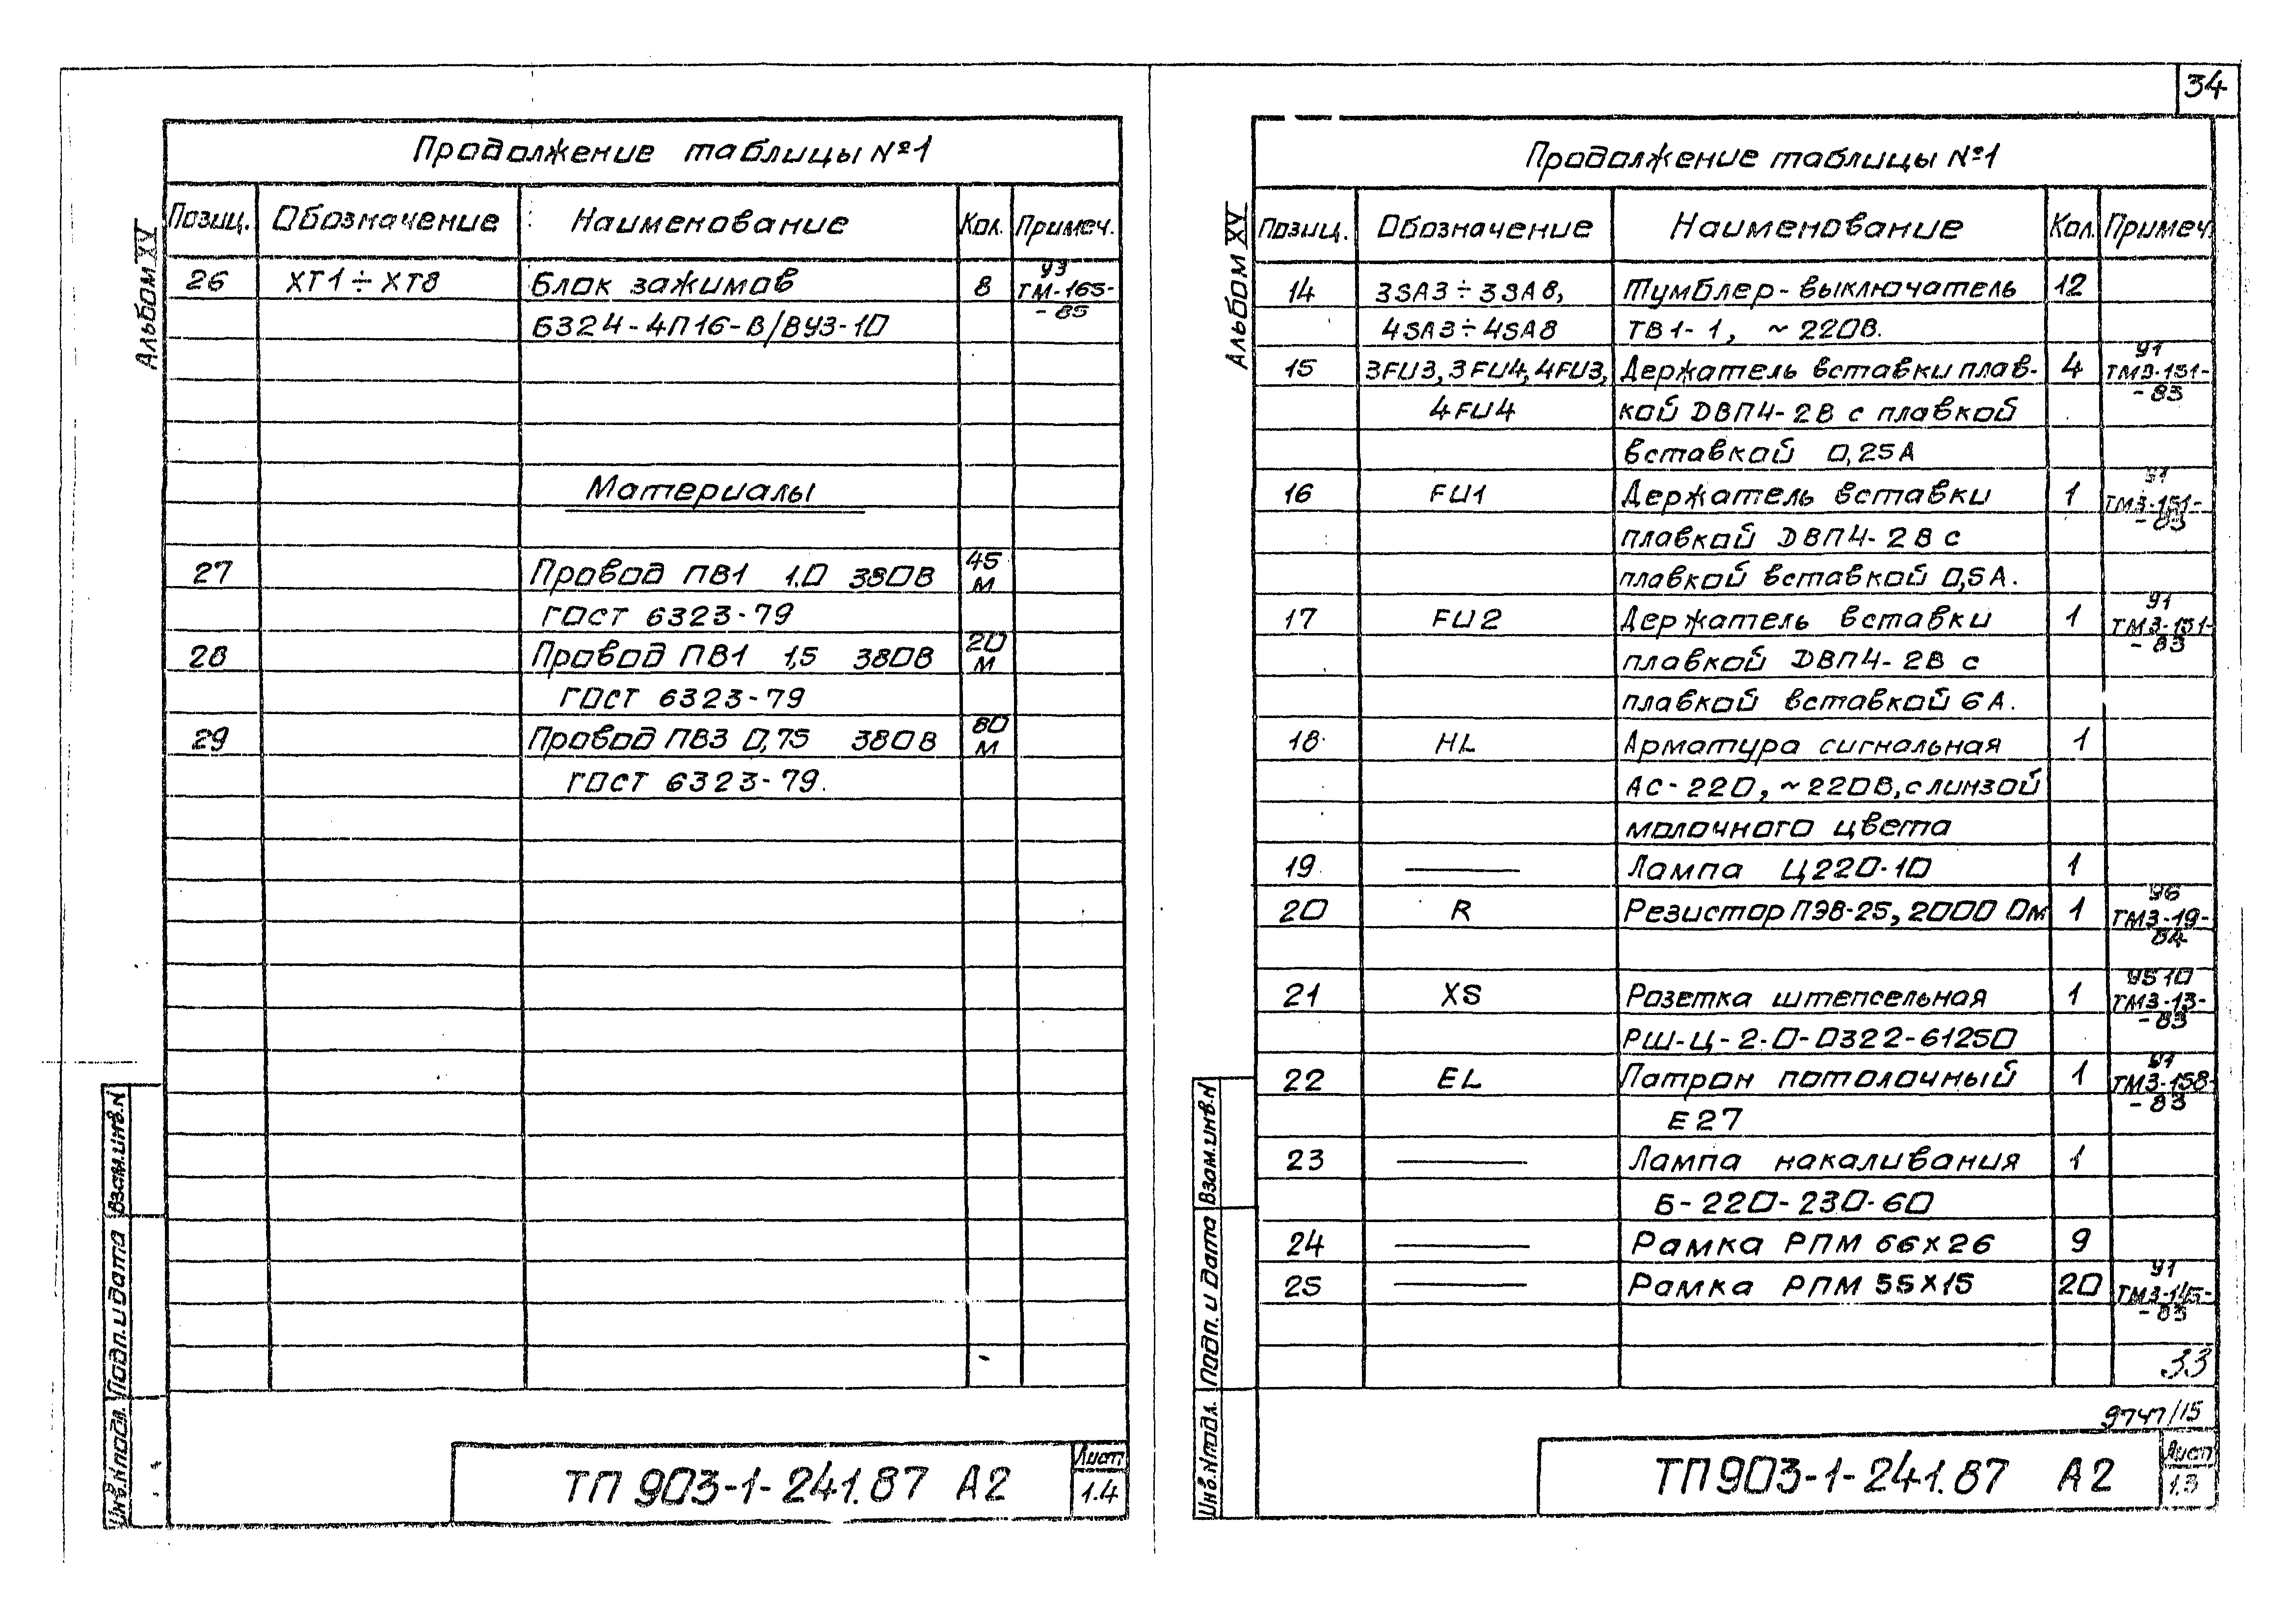 34
Альбом XV
Продолжение таблицы №1
Позиц. Обозначение Наименование Кол. Примеч.
26 ХТ1÷ХТ8 Блок зажимов 8 У3 ТМ-165-
Б324-4П16-В/ВУ3-10 -85
Материалы
27 Провод ПВ1 1.0 380В 45 м
ГОСТ 6323-79
28 Провод ПВ1 1,5 380В 20 м
ГОСТ 6323-79
29 Провод ПВ3 0,75 380В 80 м
ГОСТ 6323-79.
Инв.№подл. Подп. и дата Взам.инв.№
ТП 903-1-241.87 А2
Лист
1.4
Альбом XV
Продолжение таблицы №1
Позиц. Обозначение Наименование Кол. Примеч.
14 3SA3÷3SA8, Тумблер-выключатель 12
4SA3÷4SA8 ТВ1-1, ~220В.
15 3FU3, 3FU4, 4FU3, Держатель вставки плав- 4 У1 ТМ3-151-
4FU4 кой ДВП4-2В с плавкой -83
вставкой 0,25А
16 FU1 Держатель вставки 1 У1 ТМ3-151-
плавкой ДВП4-2В с -83
плавкой вставкой 0,5А.
17 FU2 Держатель вставки 1 У1 ТМ3-151-
плавкой ДВП4-2В с -83
плавкой вставкой 6А.
18 HL Арматура сигнальная 1
АС-220, ~220В, с линзой
молочного цвета
19 — Лампа Ц220-10 1
20 R Резистор ПЭВ-25, 2000 Ом 1 У6 ТМ3-19-
84
21 XS Розетка штепсельная 1 У510 ТМ3-13-
РШ-Ц-2-0-0322-61250 -83
22 EL Патрон потолочный 1 У1 ТМ3-158-
Е27 -83
23 — Лампа накаливания 1
Б-220-230-60
24 — Рамка РПМ 66х26 9
25 — Рамка РПМ 55х15 20 У1 ТМ3-145-
-83
33
9747/15
Инв.№подл. Подп. и дата Взам.инв.№
ТП 903-1-241.87 А2
Лист
1.3